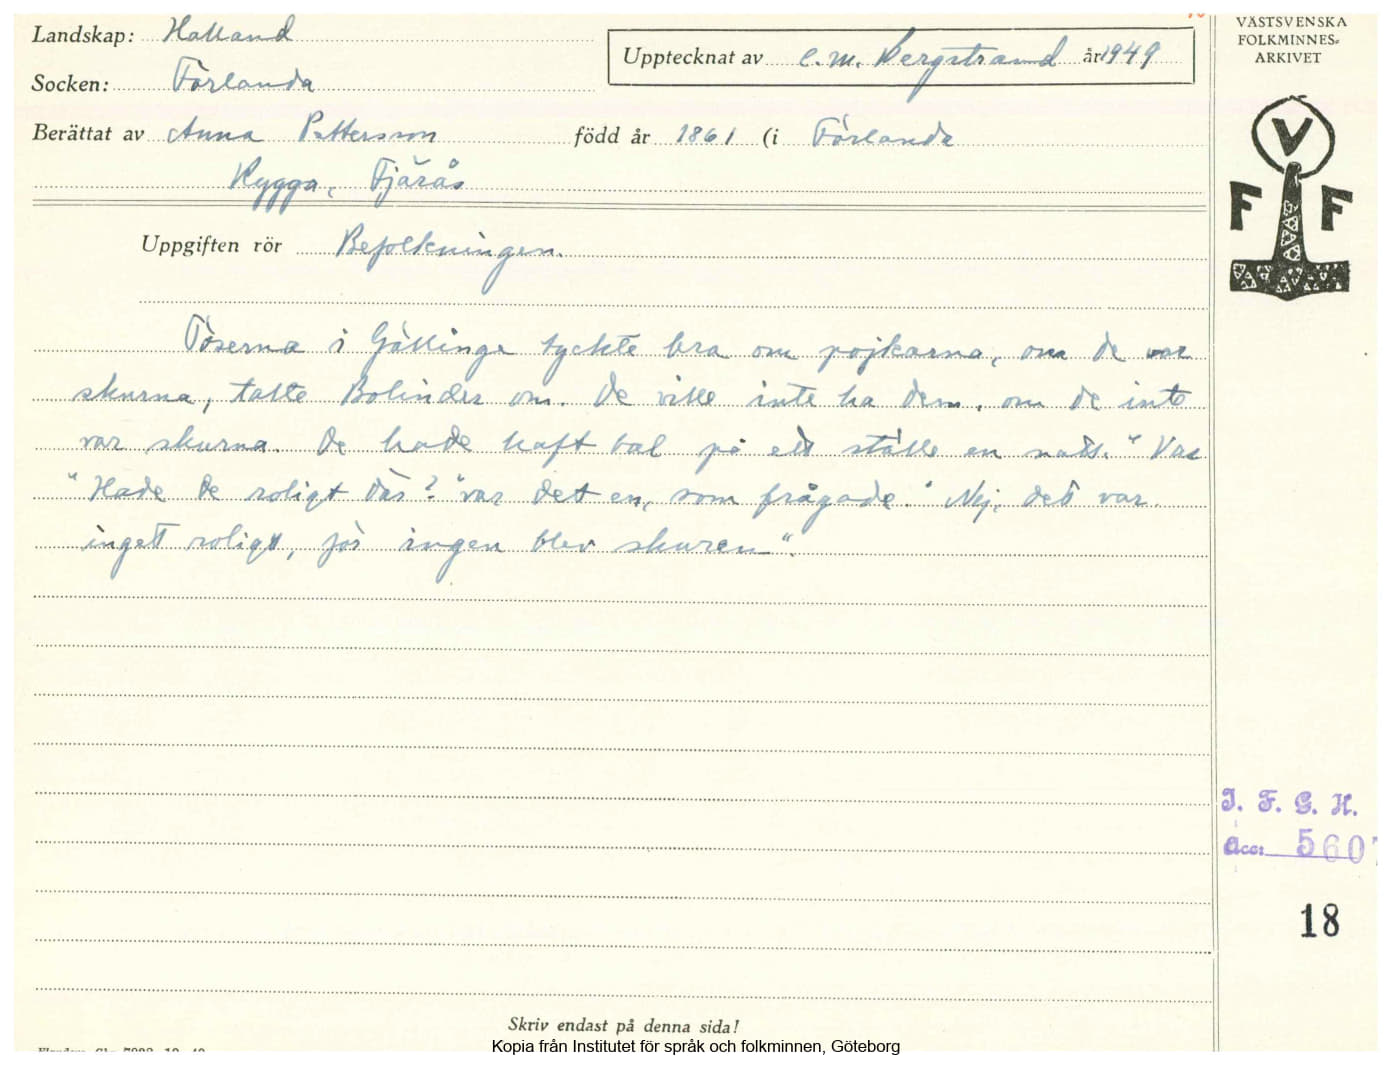 Landskap: Halland
Socken: Förlanda
Upptecknat av C. M. Bergstrand år 1949
Berättat av Anna Pettersson född år 1861 (i Förlanda
Rygga, Fjärås
Uppgiften rör Befolkningen.
Töserna i Gällinge tyckte bra om pojkarna, om de var
skurna, talte Bolinder om. De ville inte ha dem, om de inte
var skurna. De hade haft bal på ett ställe en natt. "Var
"Hade de roligt där?" var det en, som frågade. "Nej, det var
inget roligt, för ingen blev skuren".
Skriv endast på denna sida!
VÄSTSVENSKA
FOLKMINNES-
ARKIVET
V
F F
I. F. G. H.
Acc: 5607
18
Kopia från Institutet för språk och folkminnen, Göteborg